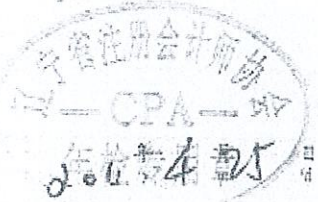 辽宁省注册会计师协会
—CPA—
年检专用章